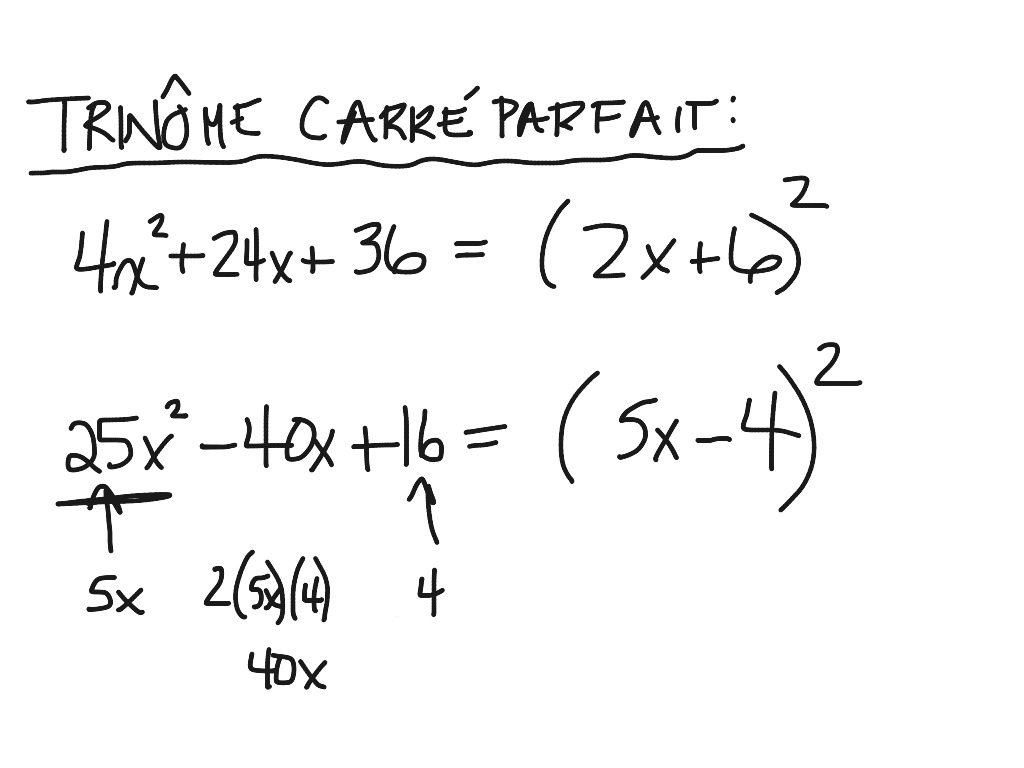 TRINÔME CARRÉ PARFAIT:
4x² + 24x + 36 = (2x + 6)²
25x² - 40x + 16 = (5x - 4)²
5x 2(5x)(4) 4
40x